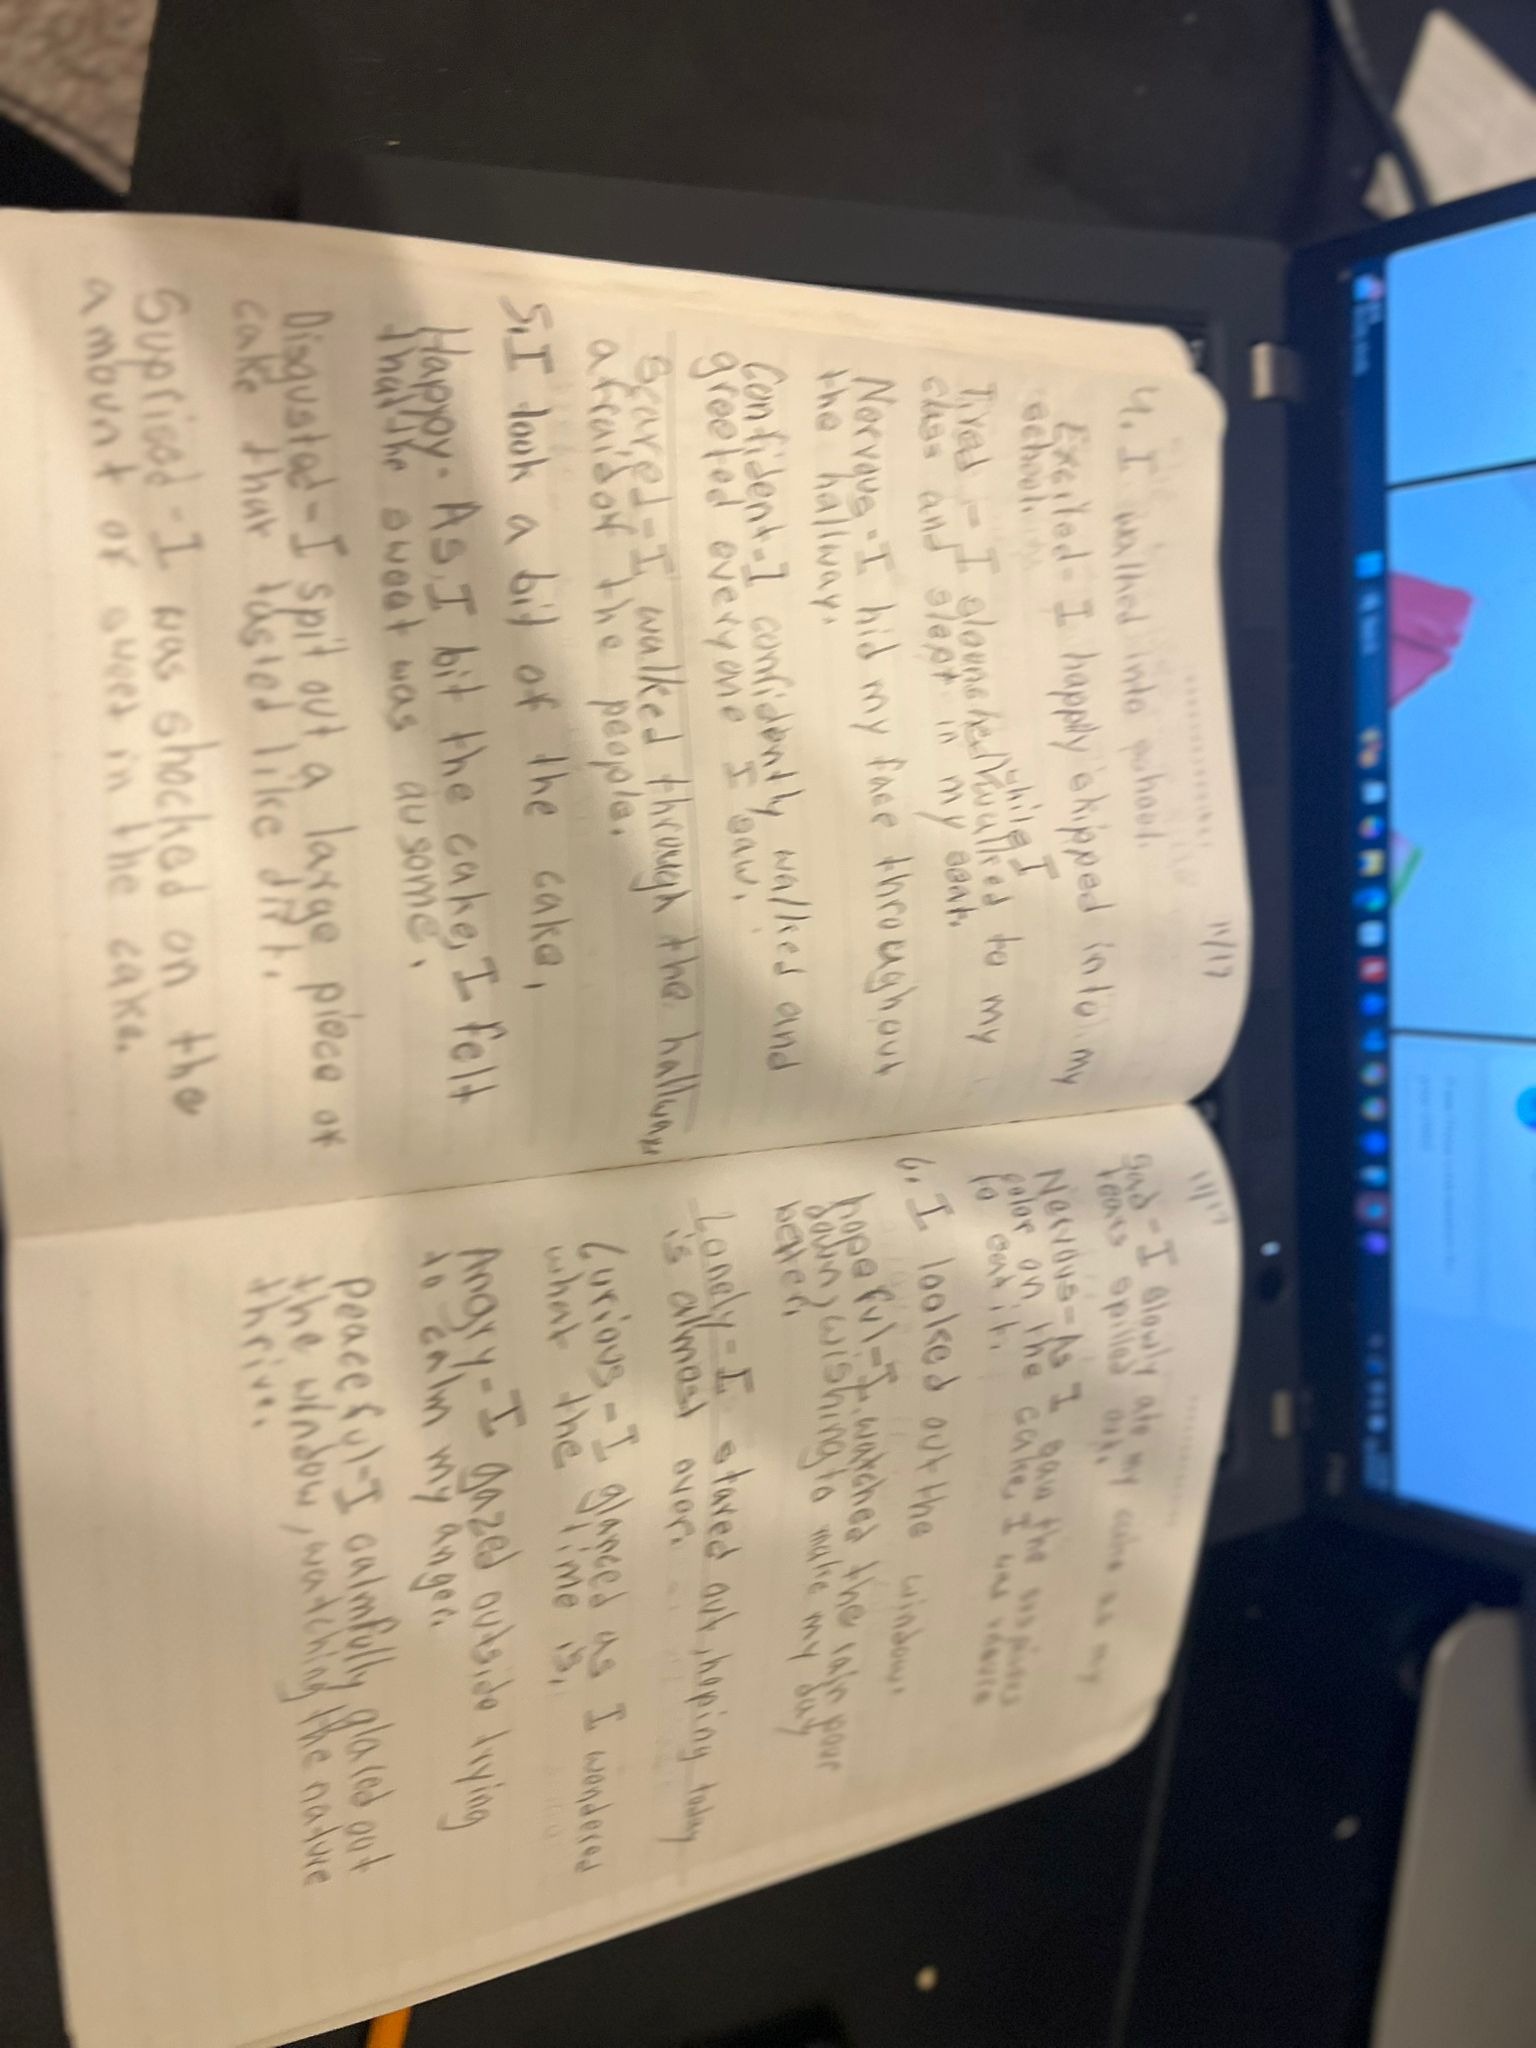 11/17
4. I walked into school.
Excited - I happily skipped into my
school.
while I
Tired - I slounched walked to my
class and slept in my seat.
Nervous - I hid my face throughout
the hallway.
Confident - I confidently walked and
greeted everyone I saw.
Scared - I walked through the hallway
afraid of the people.
5. I took a bit of the cake,
Happy - As I bit the cake, I felt
that the sweet was ausome.
Disgusted - I spit out a large piece of
cake that tasted like dirt.
Suprised - I was shocked on the
amount of sweet in the cake.
11/17
Sad - I slowly ate my cake as my
tears spilled out.
Nervous - As I saw the
color on the cake, I was
to eat it.
6. I looked out the window.
hopeful - I watched the rain pour
down, wishing to make my day
better.
Lonely - I stared out, hoping today
is almost over.
Curious - I glanced as I wondered
what the time is.
Angry - I gazed outside trying
to calm my anger.
Peaceful - I calmfully glared out
the window, watching the nature
thrive.